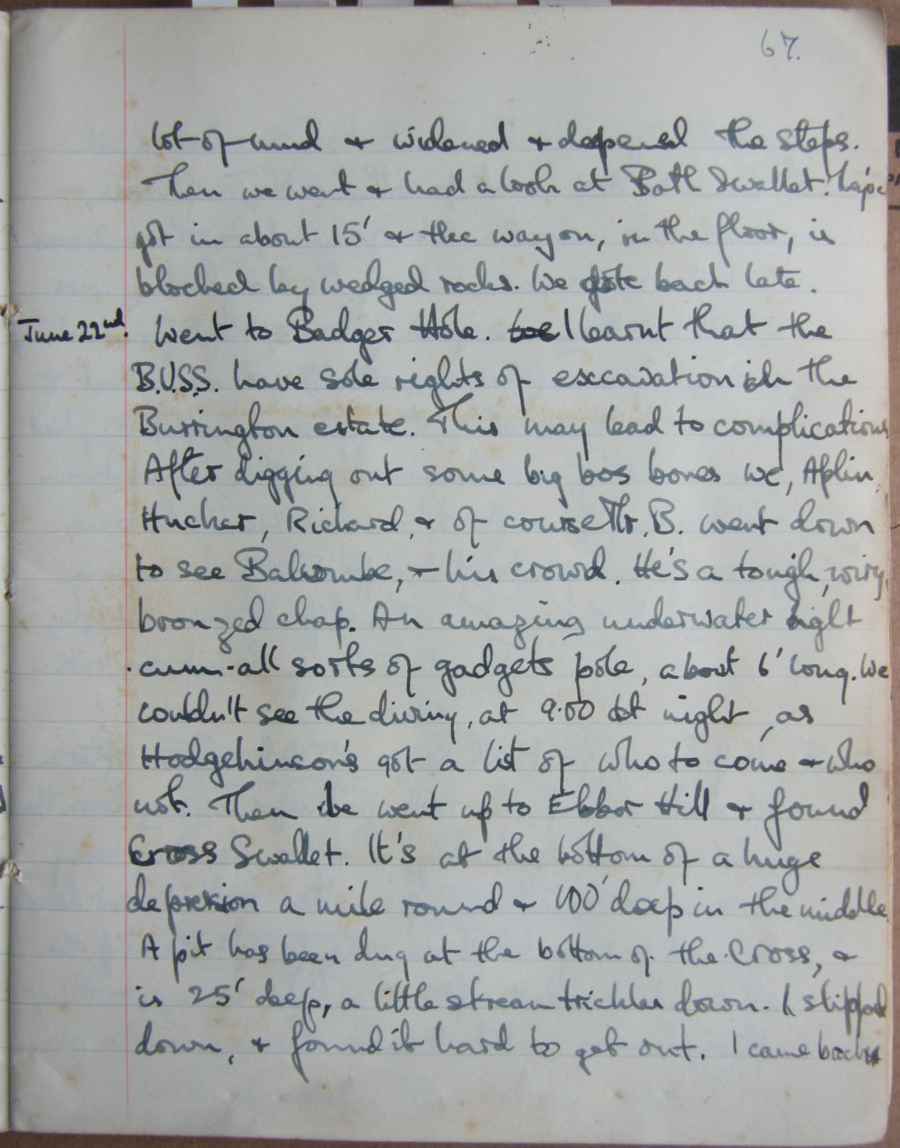 67.
lot of mud & widened & deepened the steps.
Then we went & had a look at Bath Swallet.
got in about 15' & the way on, in the floor, is
blocked by wedged rocks. We got back late.
June 22nd. Went to Badger Hole. I learnt that the
B.U.S.S. have sole rights of excavation in the
Burrington estate. This may lead to complications
After digging out some big bos bones we, Aplin,
Hucker, Richard, & of course Mr. B. went down
to see Balcombe, & his crowd. He's a tough, wiry,
bronzed chap. An amazing underwater light
-cum-all sorts of gadgets pole, about 6' long. We
couldn't see the diving, at 9.00 at night, as
Hodgehinson's got a list of who to come & who
not. Then we went up to Ebbor Hill & found
Cross Swallet. It's at the bottom of a huge
depression a mile round & 100' deep in the middle.
A pit has been dug at the bottom of the Cross, &
is 25' deep, a little stream trickles down. I slipped
down, & found it hard to get out. I came back